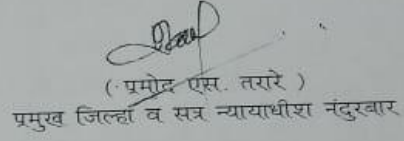 ( प्रमोद एस. तरारे )
प्रमुख जिल्हा व सत्र न्यायाधीश नंदुरबार